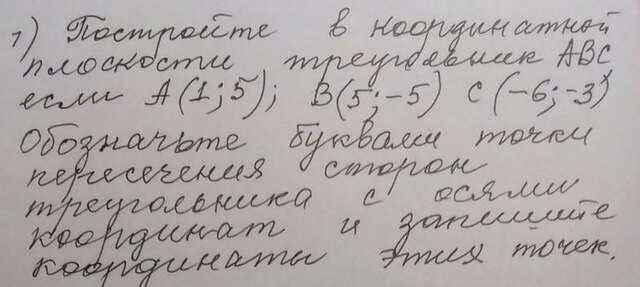 1) Постройте в координатной
плоскости треугольник ABC
если A(1;5); B(5;-5) C(-6;-3)
Обозначьте буквами точки
пересечения сторон
треугольника с осями
координат и запишите
координаты этих точек.